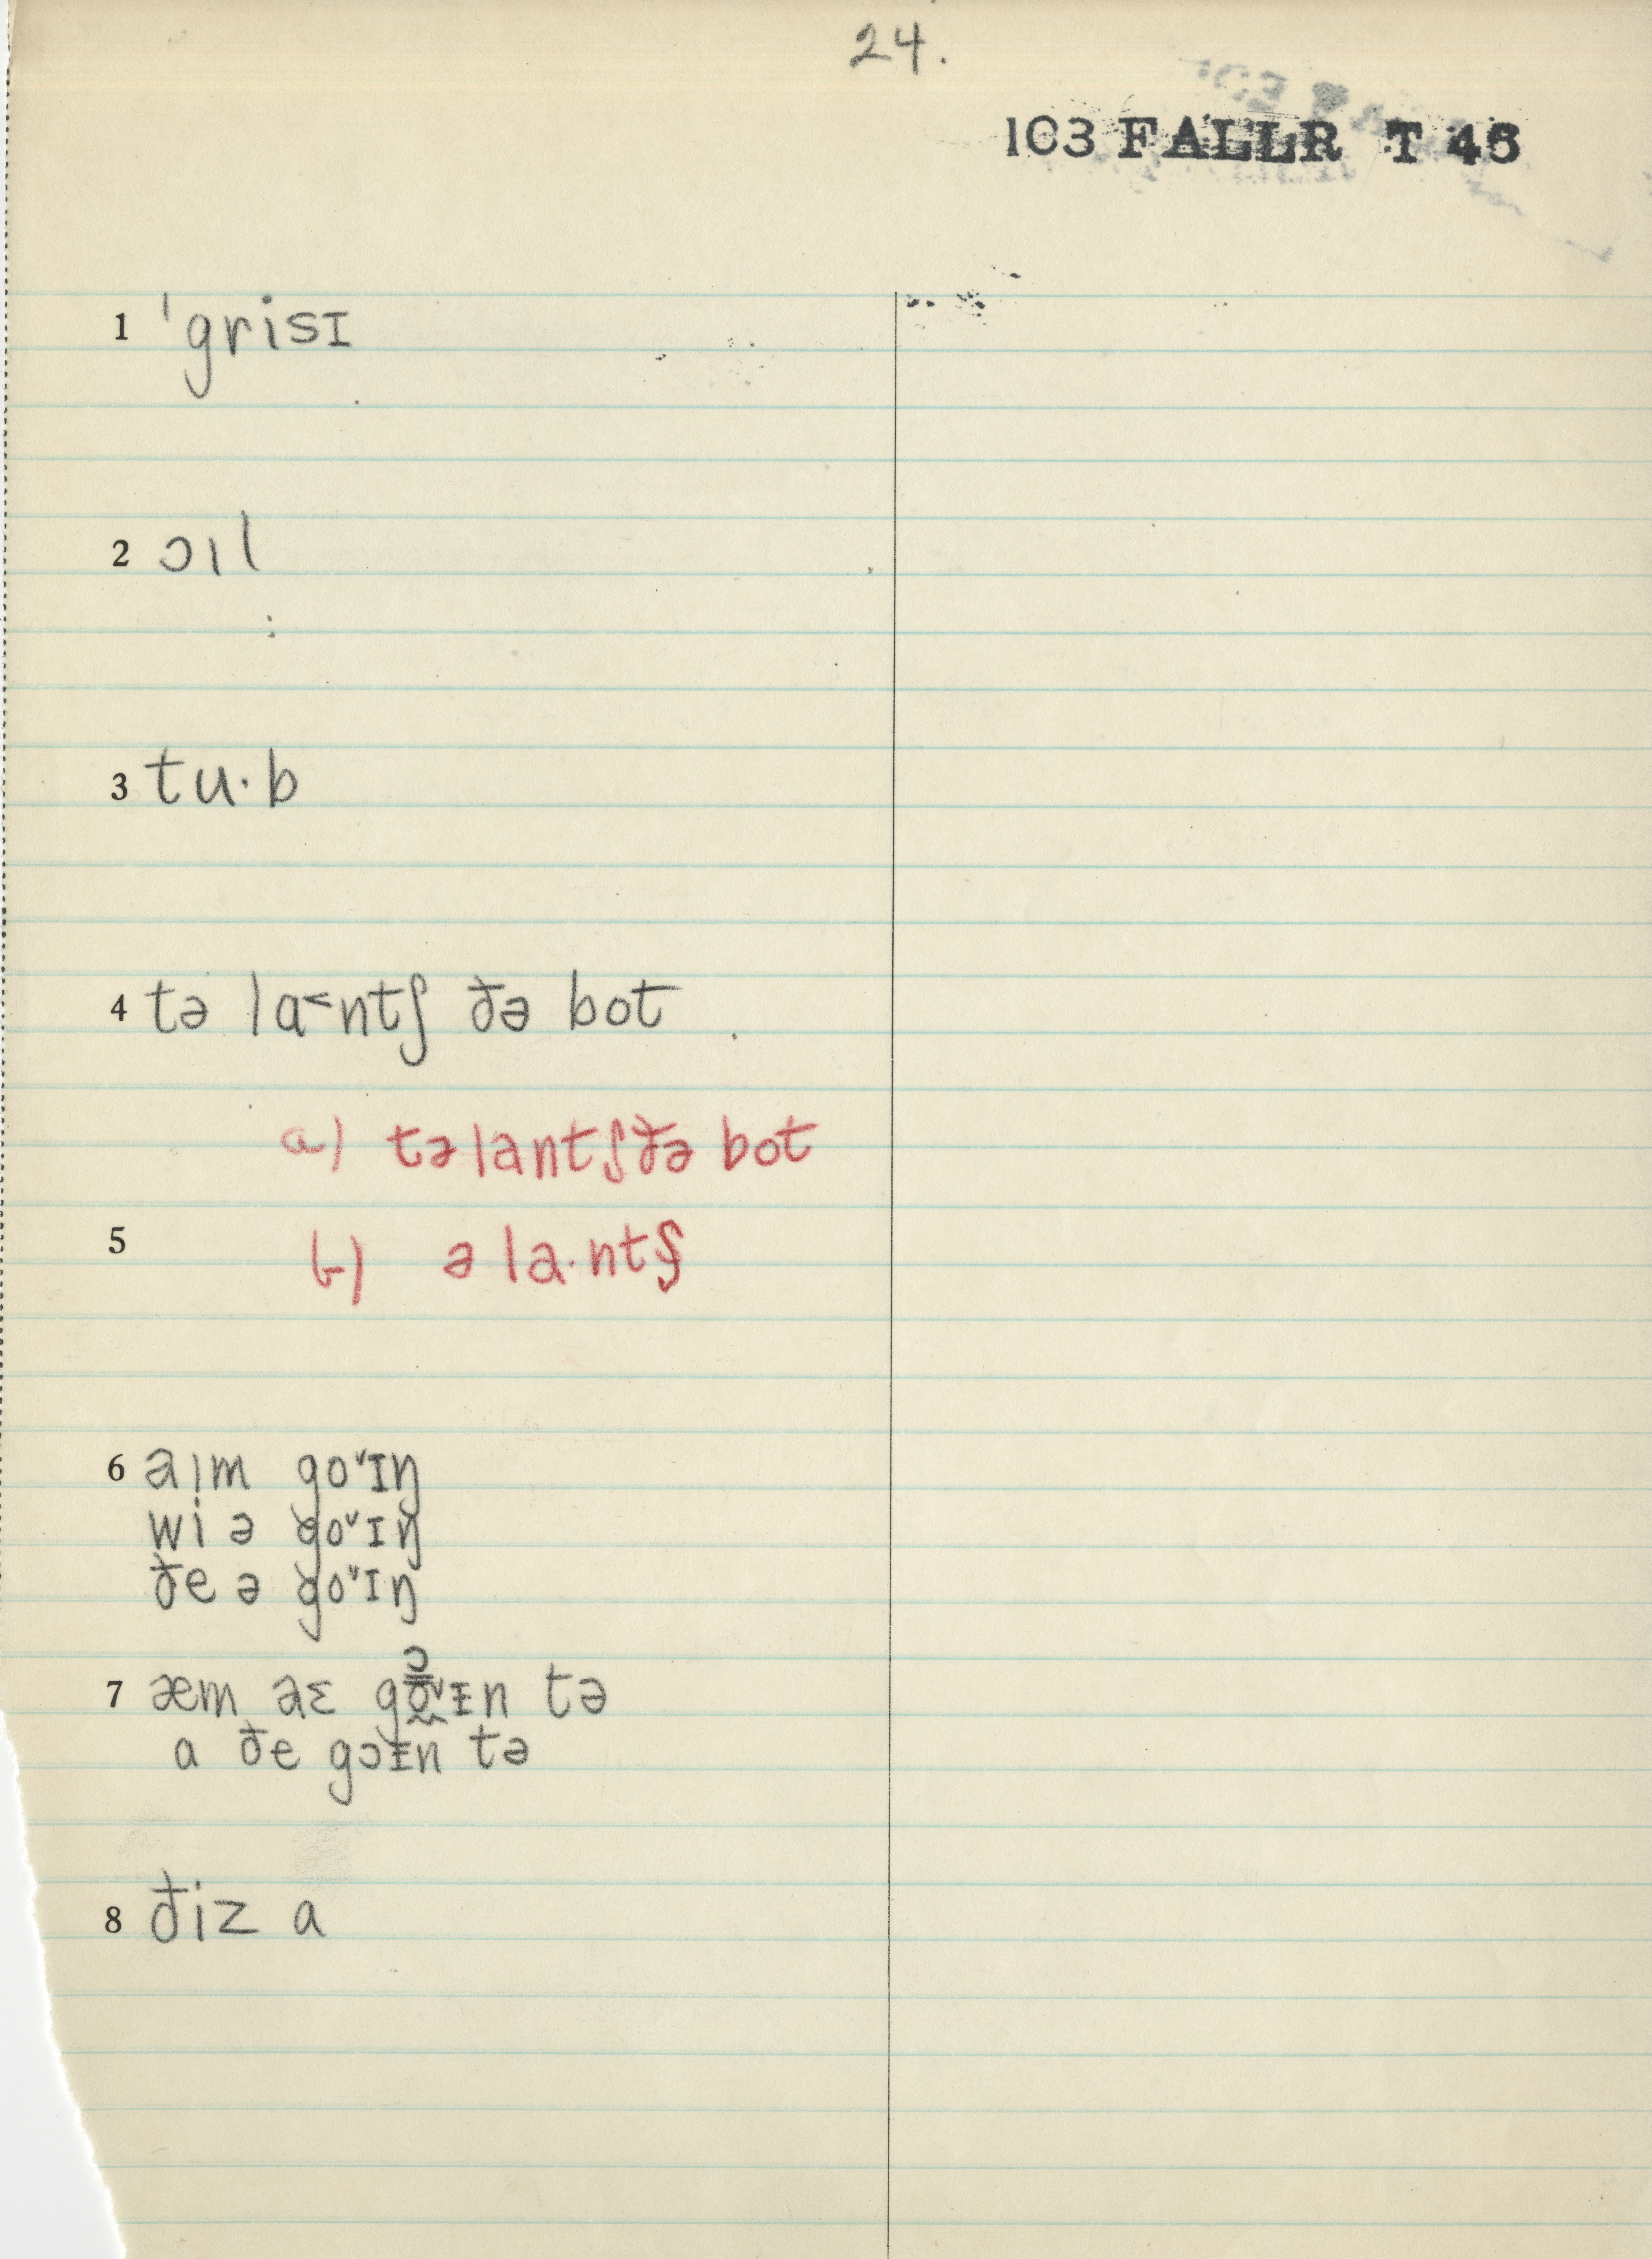 24.
103 FALLR T 46
1 ˈgrisɪ
2 ɔıl
3 tu·b
4 tə la˂ntʃ ðə bot
a) tə lantʃ ðə bot
5
b) ə la·ntʃ
6 aım go˅ɪŋ
wi ə go˅ɪŋ
ðe ə go˅ɪŋ
7 æm aɛ go˅ᵻn tə
a ðe gɔᵻn tə
8 ðiz a